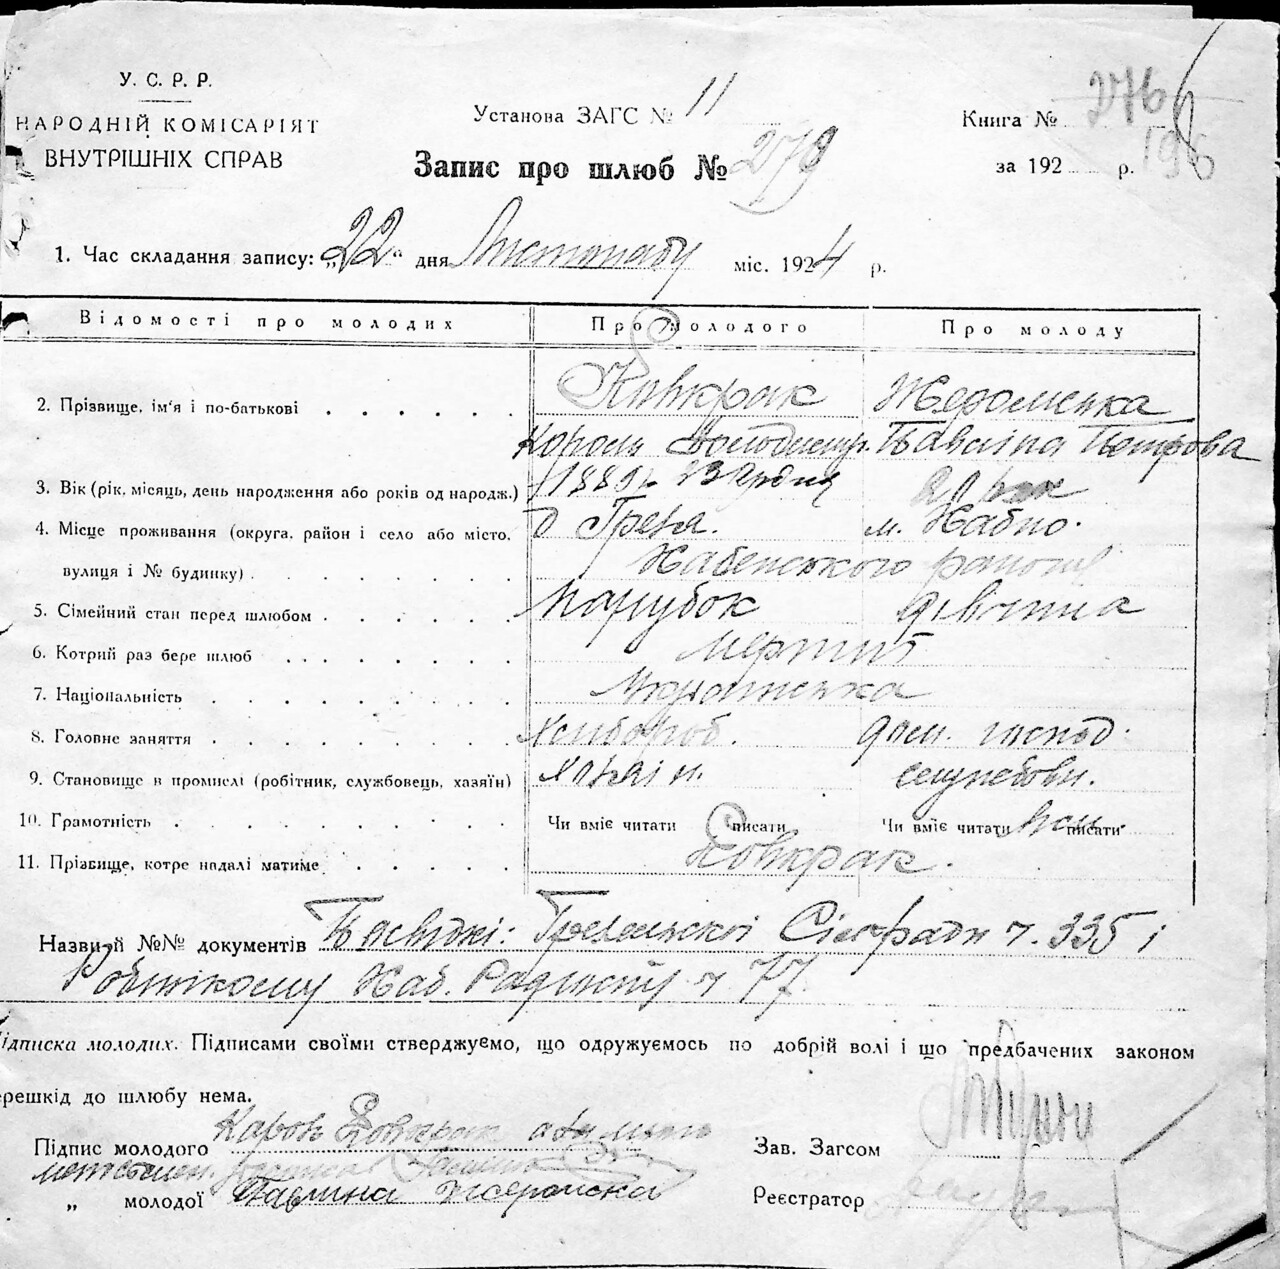 У. С. Р. Р.
НАРОДНІЙ КОМІСАРІЯТ
ВНУТРІШНІХ СПРАВ
Установа ЗАГС № 11
Запис про шлюб № 279
Книга № 276
за 192 р. 196
1. Час складання запису: „22“ дня Листопаду міс. 1924 р.
Відомості про молодих Про молодого Про молоду
2. Прізвище, ім'я і по-батькові Жеромська
Кароль Володимир. Павліна Петрова
3. Вік (рік, місяць, день народження або років од народж.) 1889 р. 23 Грудня 20 рок
4. Місце проживання (округа, район і село або місто, м. Хабно.
вулиця і № будинку) Хабенського району
5. Сімейний стан перед шлюбом Парубок дівчина
6. Котрий раз бере шлюб перший
7. Національність
8. Головне заняття хлібороб. дом. господ.
9. Становище в промислі (робітник, службовець, хазяїн) хазяїн. службови.
10. Грамотність Чи вміє читати писати Чи вміє читати писати
11. Прізвище, котре надалі матиме
Назви й №№ документів Посвідкі: Сільради ч. 335 і
Хаб. ч 77
Підписка молодих. Підписами своїми стверджуємо, що одружуємось по добрій волі і що предбачених законом
перешкід до шлюбу нема.
Підпис молодого Кароль
„ молодої Павлина Жеромска
Зав. Загсом
Реєстратор